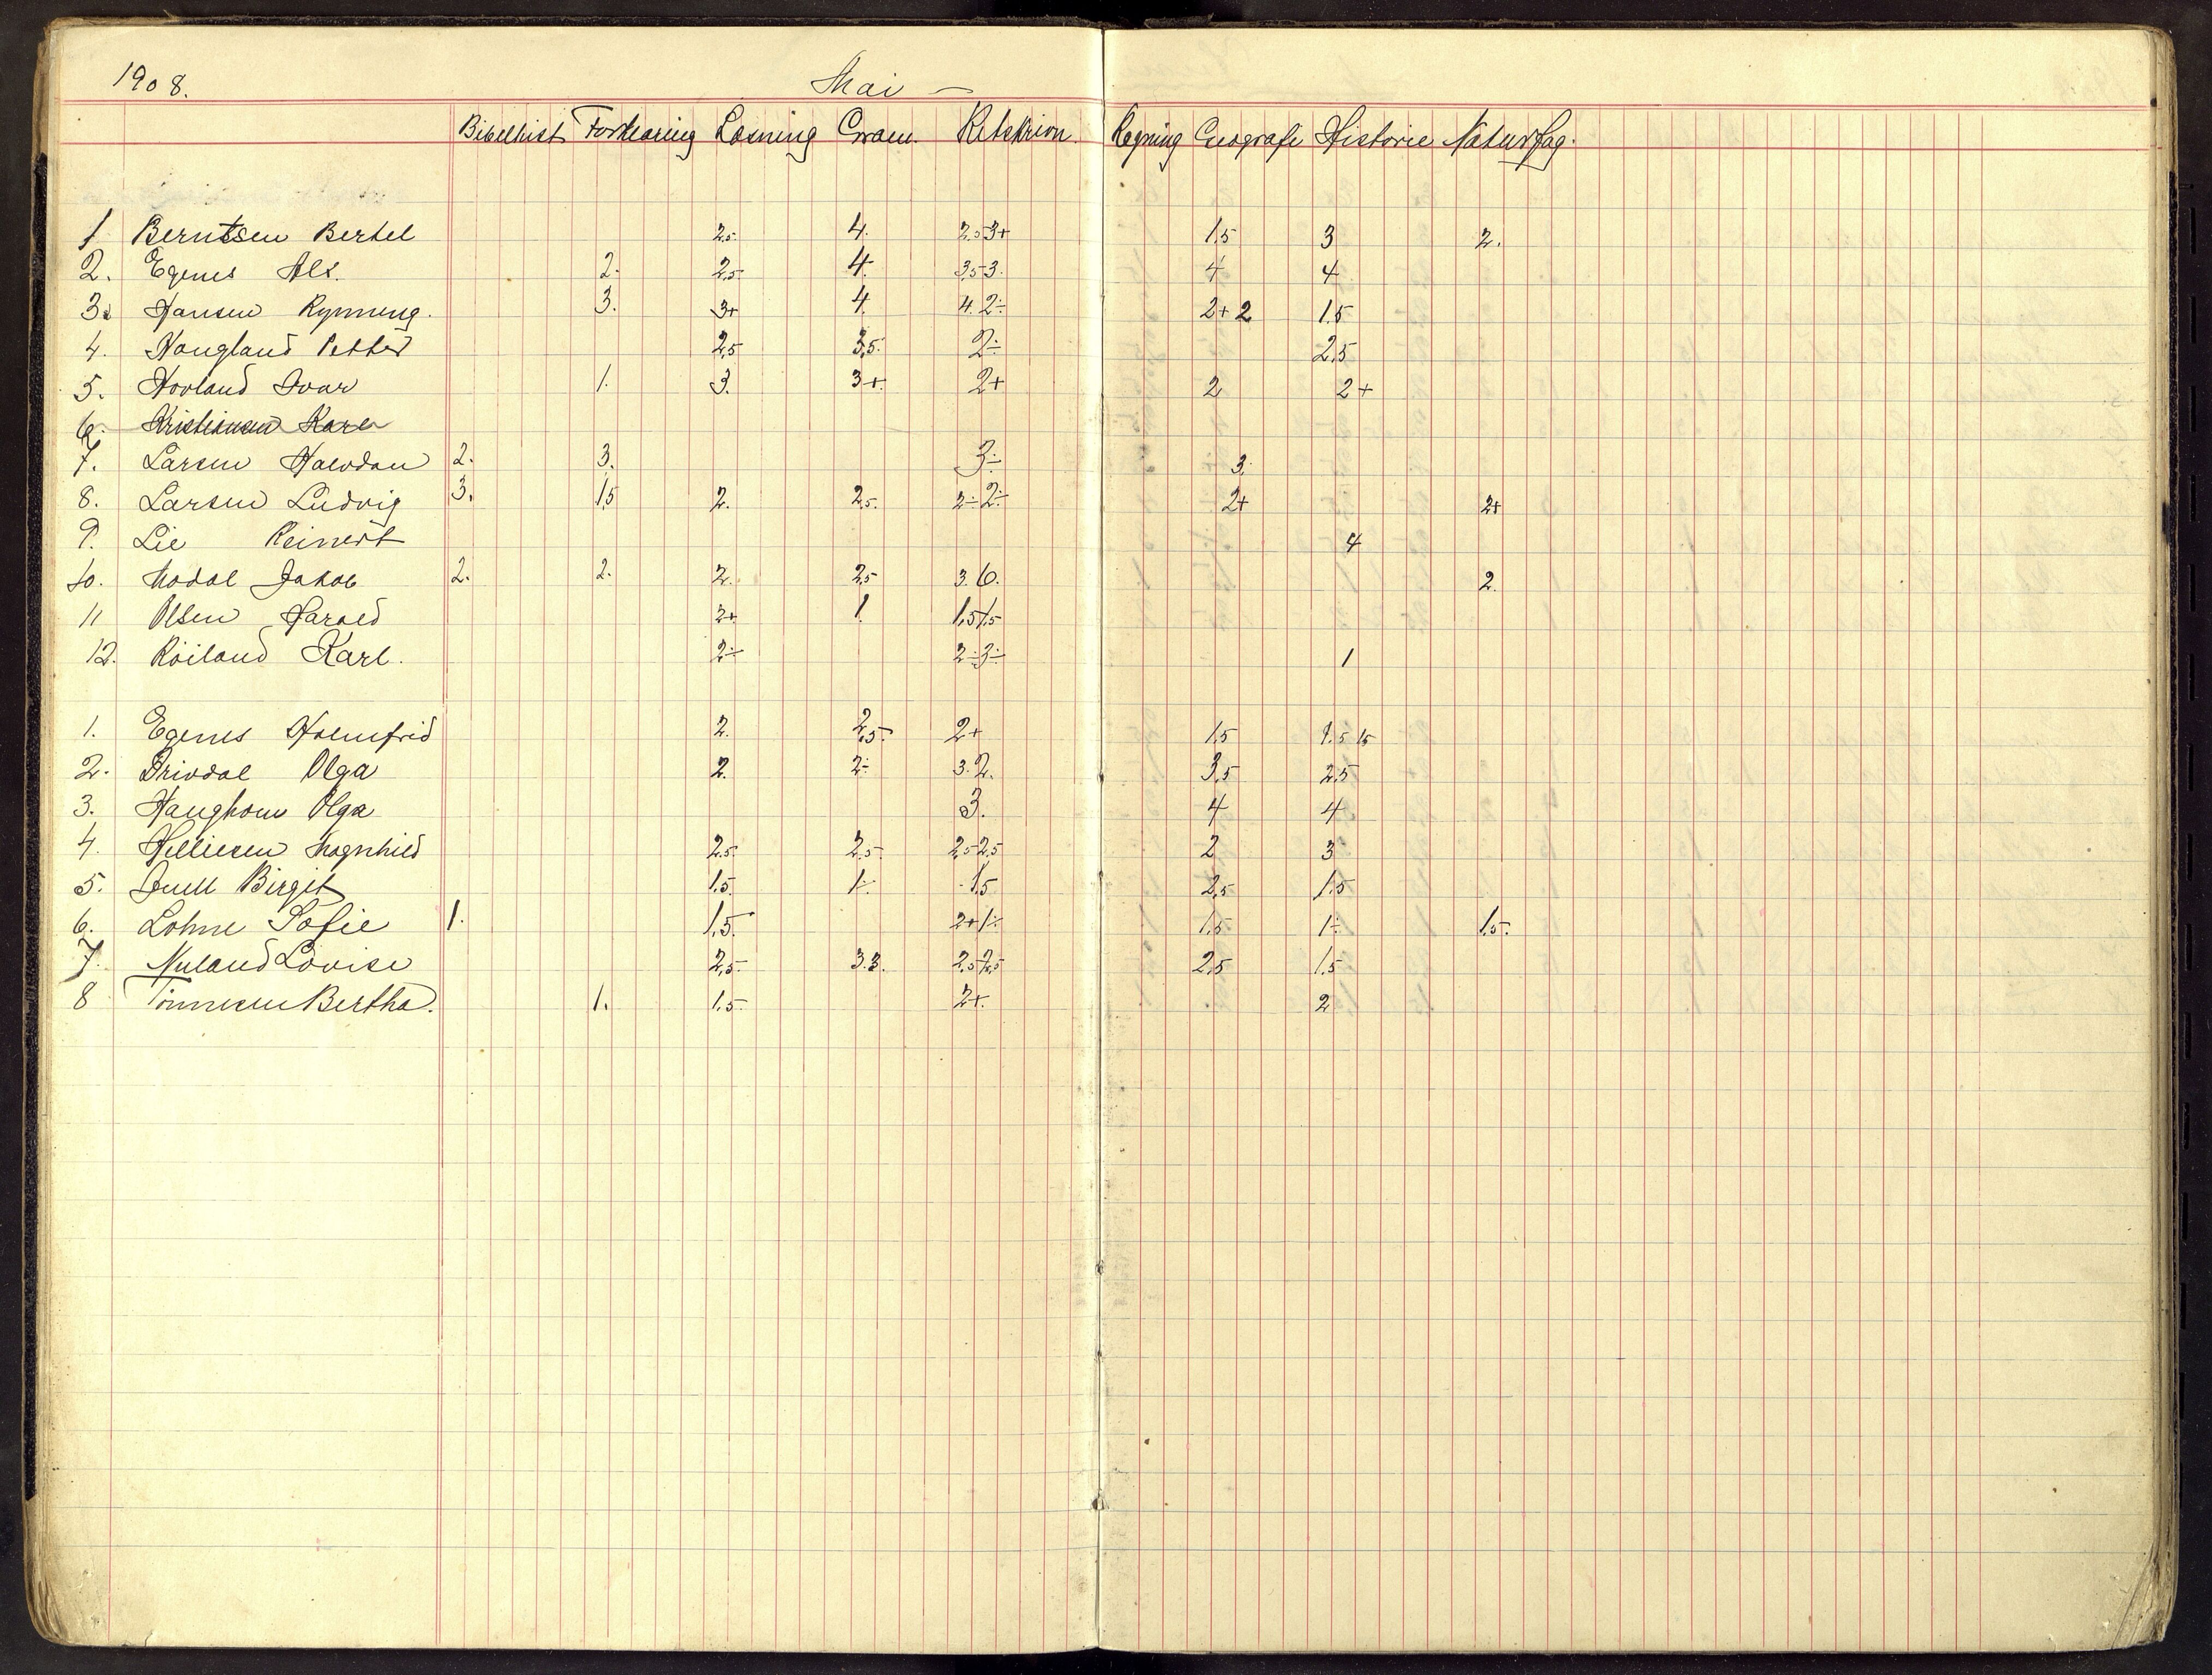 1908. Mai —
Bibelhist Forklaring Læsning Gram. Retskrivn. Regning Geografi Historie Naturfag.
1 Berntsen Bertel 2,5 4. 2,5 3+ 1,5 3 2.
2. Egenes Alf. 2. 2,5 4. 3,5 3. 4 4
3. Hansen Rynning. 3. 3+ 4. 4. 2÷ 2+ 2 1.5
4. Haugland Petter 2,5 3,5. 2÷ 2,5
5. Hovland Ivar 1. 3. 3+ 2+ 2 2+
6. Kristiansen Kare
7. Larsen Halvdan 2. 3. 3÷ 3.
8. Larsen Ludvig 3. 1,5 2. 2,5. 2÷ 2÷ 2+ 2+
9. Lie Reinert 4
10. Modal Jakob 2. 2. 2. 2,5 3. 6. 2.
11 Olsen Harald 2+ 1. 1,5 1,5
12. Röiland Karl. 2÷ 2÷ 3÷ 1
1. Egenes Holmfrid 2. 2,5. 2+ 1,5 1.5 1,5
2. Drivdal Olga 2. 2÷ 3. 2. 3,5 2,5
3. Haughom Olga 3. 4 4
4. Helliesen Magnhild 2,5. 2,5. 2,5 2,5 2 3
5. Juell Birgit 1,5. 1÷. 1,5 2,5 1,5
6. Lohne Sofie 1. 1,5. 2+ 1÷ 1,5 1÷ 1,5.
7. Nuland Lovise 2,5. 3.3. 2,5 2,5 2,5 1.5
8 Tönnesen Bertha. 1. 1,5. 2+. 2